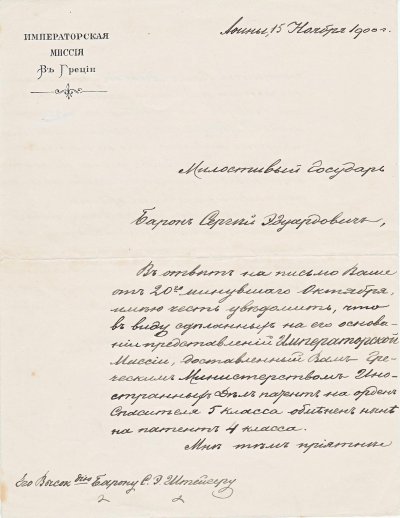 ИМПЕРАТОРСКАЯ
МИССІЯ
Въ Греціи
Аѳины, 15 Ноября 1900 г.
Милостивый Государь
Баронъ Сергѣй Эдуардовичъ,
Въ отвѣтъ на письмо Ваше
отъ 20го минувшаго Октября,
имѣю честь увѣдомить, что
въ виду сдѣланныхъ на его основа
ніи представленій Императорской
Миссіи, доставленный Вамъ Гре
ческимъ Министерствомъ Ино
странныхъ Дѣлъ патентъ на орденъ
Спасителя 5 класса обмѣненъ нынѣ
на патентъ 4 класса.
Мнѣ тѣмъ пріятнѣе
Его Высок дію Барону С. Э. Штейгеру